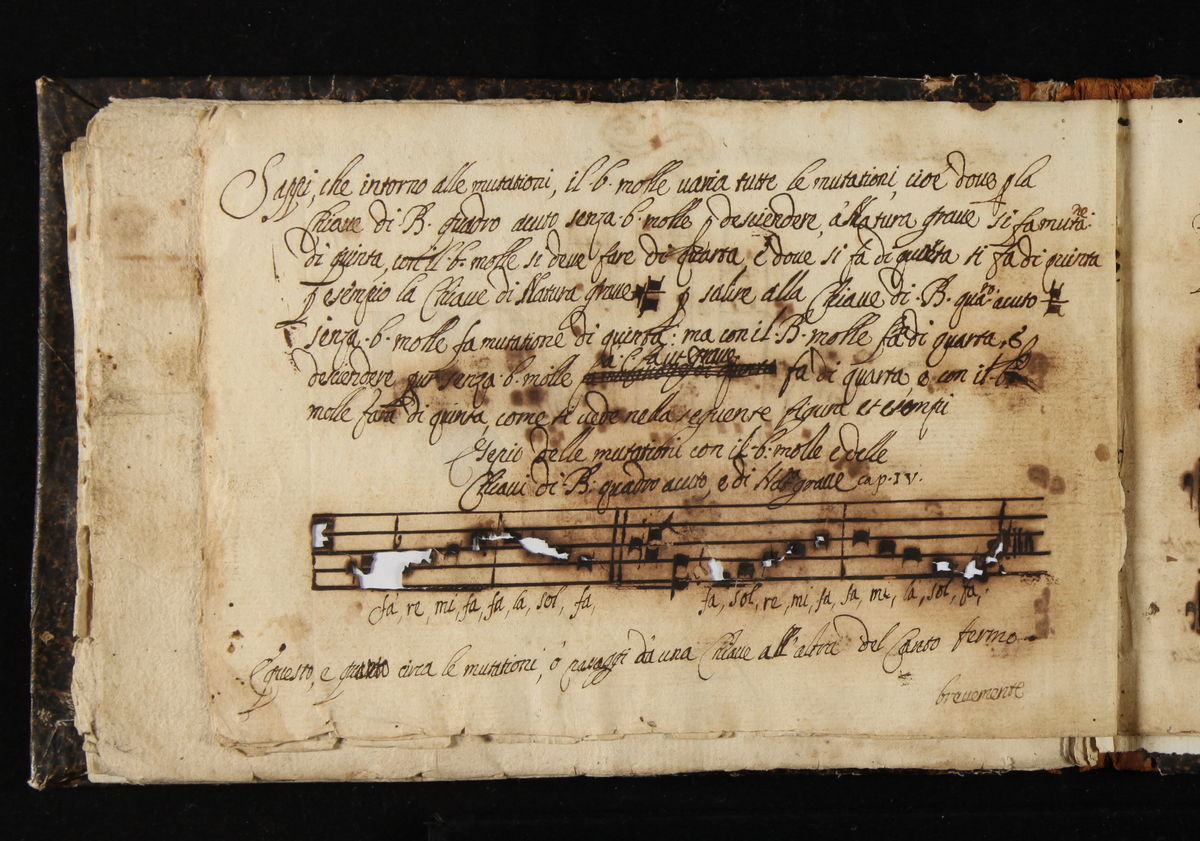 Sappi, che intorno alle mutationi, il ·b· molle varia tutte le mutationi, cioè dove p la
Chiave di ·B· quadro acuto senza ·b· molle p desciendere, à Natura grave si fa muta.ne
di quinta, con il b· molle si deve fare di quarta e dove si fà di quarta si fà di quinta
p esempio la Chiave di Natura grave p salire alla Chiave di ·B· qua.ro acuto
senza ·b· molle fa mutatione di quinta: ma con il ·B· molle fà di quarta, e
desciendere pur senza ·b· molle fà di quarta e con il ·b·
molle farà di quinta, come si vede nella seguente figura et esempi
Esepio delle mutationi con il ·b· molle e delle
Chiavi di ·B· quadro acuto, e di Nat. grave cap. IV.
fà, re, mi, fa, fa, la, sol, fa, fa, sol, re, mi, fa, fa, mi, la, sol, fa,
E questo, e quanto circa le mutationi, ò passaggi da una Chiave all'altra del Canto fermo
brevemente